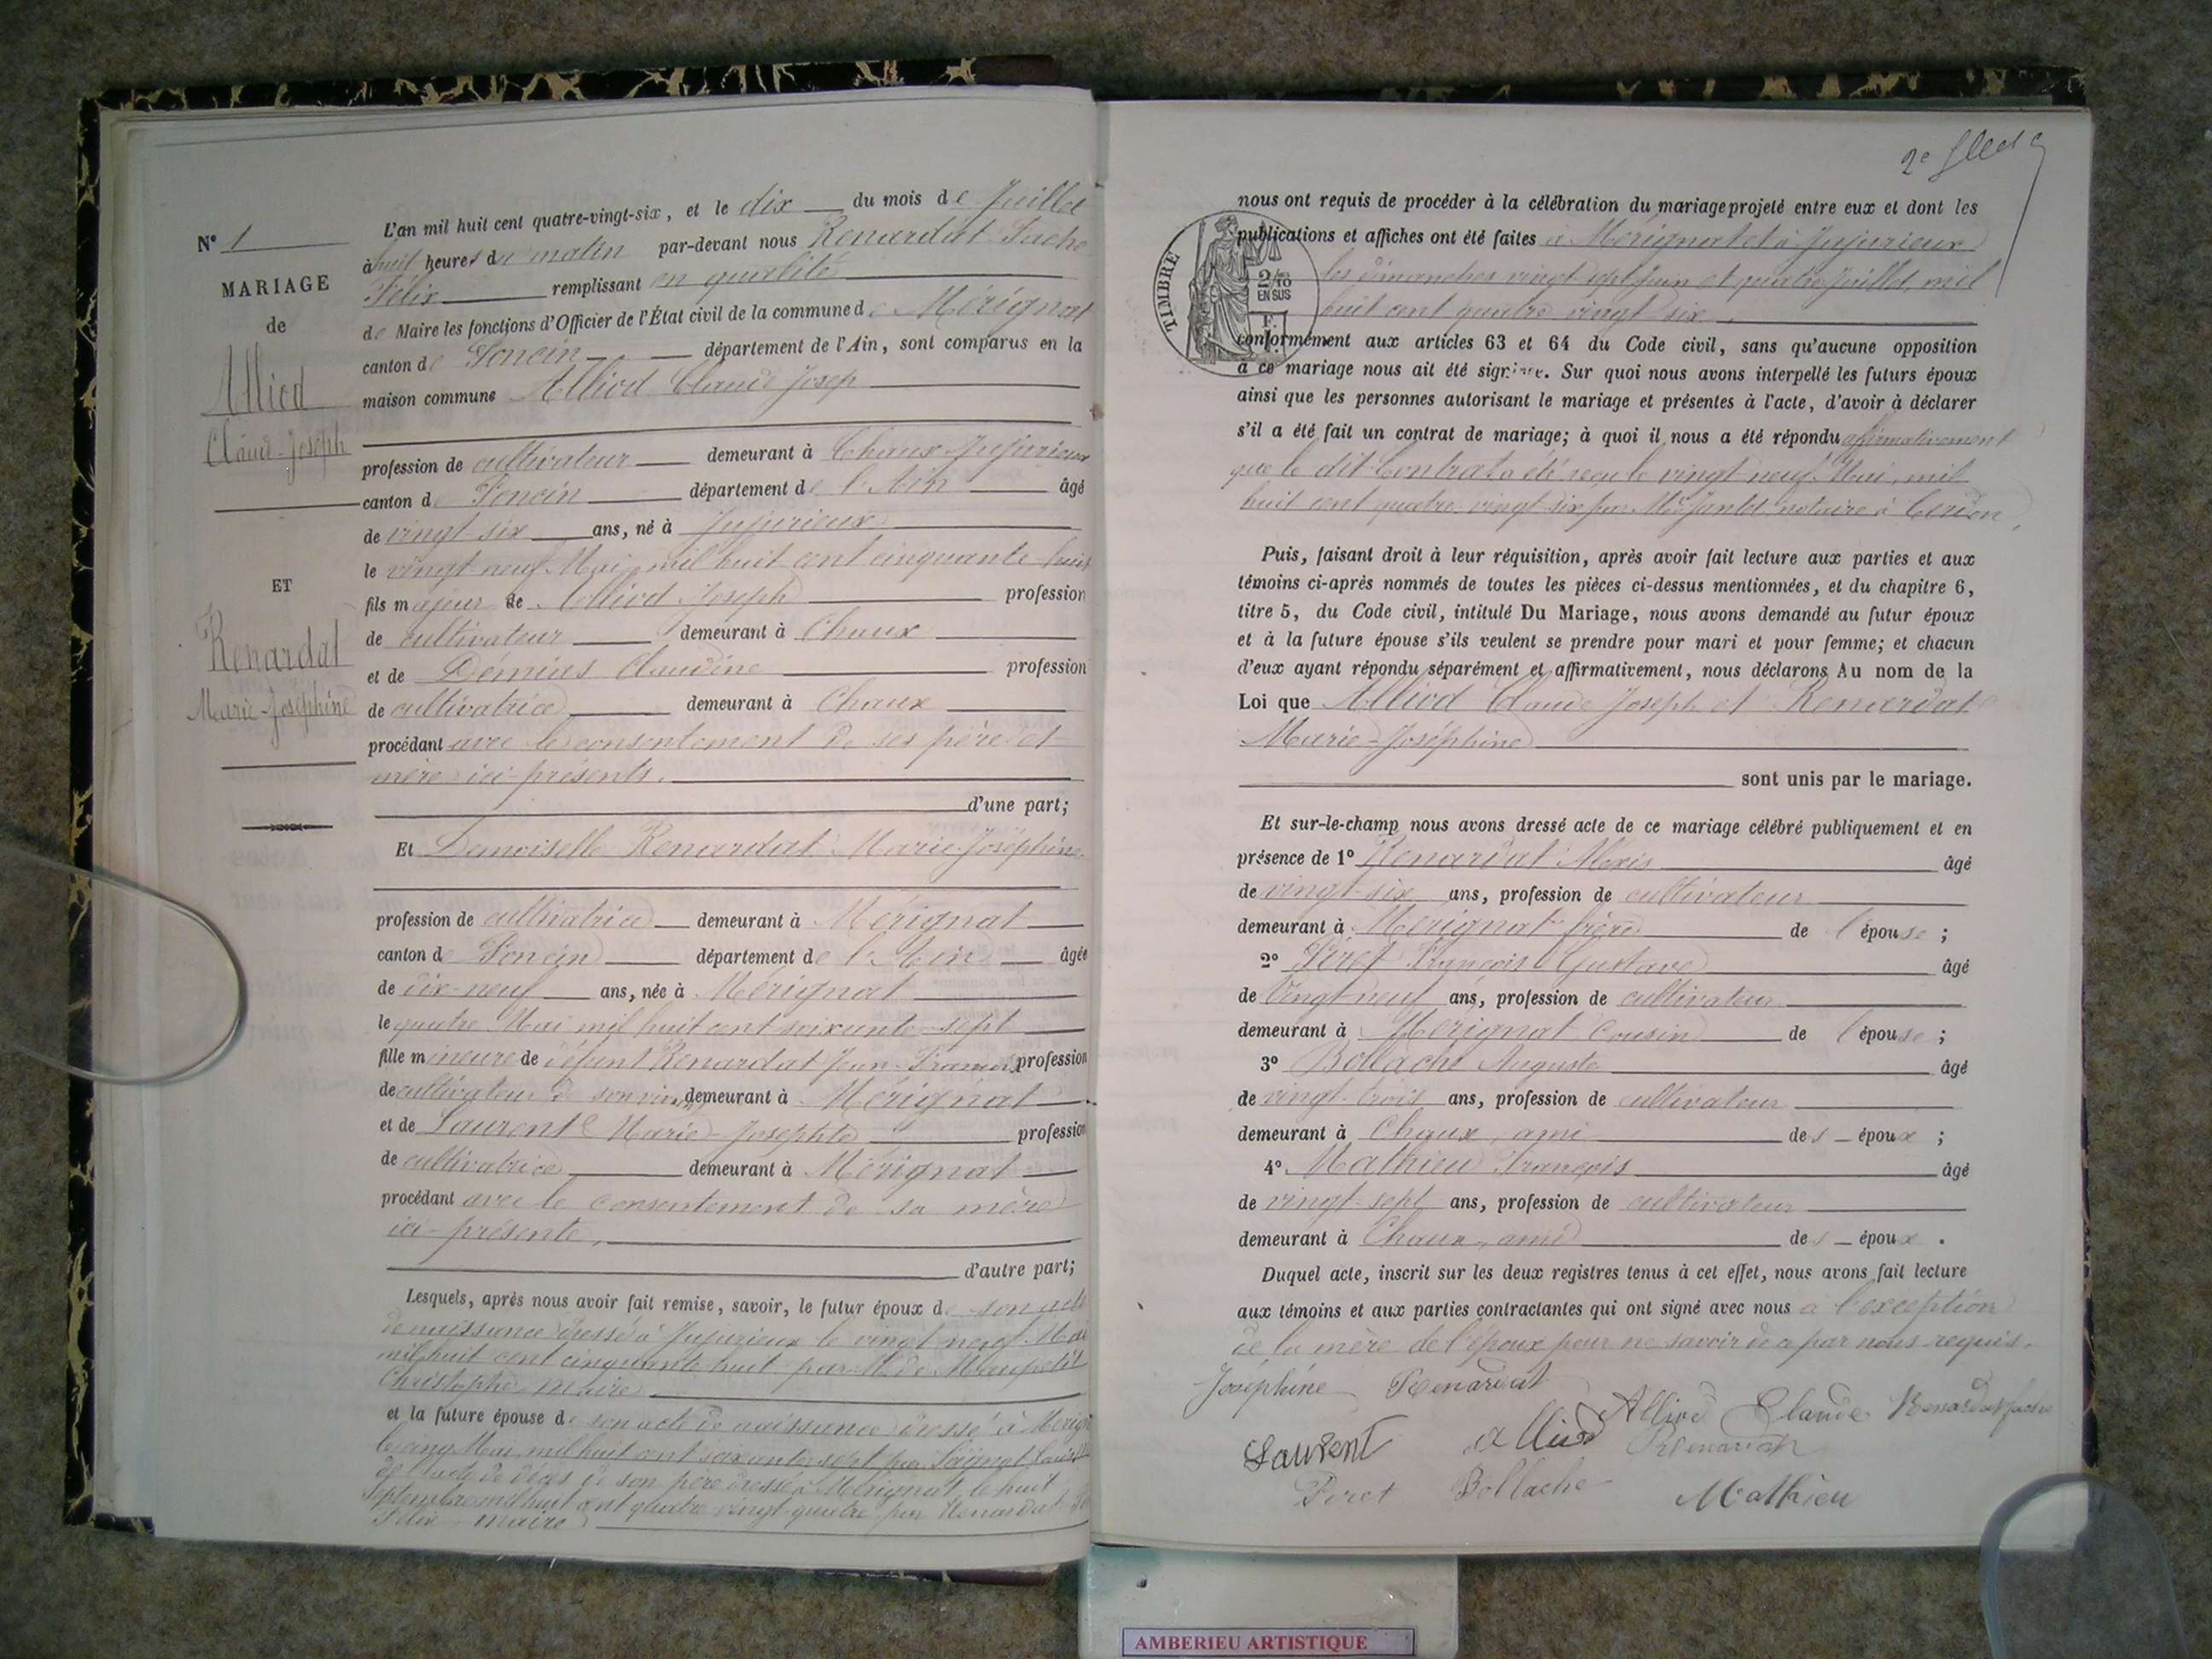 N° 1
MARIAGE
de
Alliod
Claude-Joseph
ET
Renardat
Marie-Joséphine
L'an mil huit cent quatre-vingt-six, et le dix du mois de Juillet
à huit heures du matin par-devant nous Renardat Fache
Félix remplissant en qualité
de Maire les fonctions d'Officier de l'État civil de la commune de Mérignat
canton de Poncin département de l'Ain, sont comparus en la
maison commune Alliod Claude Josep
profession de cultivateur demeurant à Chaux Jujurieux
canton de Poncin département de l'Ain âgé
de vingt-six ans, né à Jujurieux
le vingt neuf Mai mil huit cent cinquante-huit
fils majeur de Alliod Joseph profession
de cultivateur demeurant à Chaux
et de Démias Claudine profession
de cultivatrice demeurant à Chaux
procédant avec le consentement de ses père et
mère ici présents.
d'une part;
Et Demoiselle Renardat Marie-Joséphine
profession de cultivatrice demeurant à Mérignat
canton de Poncin département de l'Ain âgée
de dix-neuf ans, née à Mérignat
le quatre Mai mil huit cent soixante-sept
fille mineure de défunt Renardat Jean-Francois profession
de cultivateur de son vivant demeurant à Mérignat
et de Laurent Marie-Josephte profession
de cultivatrice demeurant à Mérignat
procédant avec le consentement de sa mère
ici-présente,
d'autre part;
Lesquels, après nous avoir fait remise, savoir, le futur époux de son acte
de naissance dressé à Jujurieux le vingt neuf Mai
mil huit cent cinquante huit par M. de Maupetit
Christophe maire
et la future épouse de son acte de naissance dressé à Mérign
le cinq Mai mil huit cent soixante sept par
de l'acte de décès de son père dressé à Mérignat le huit
Septembre mil huit cent quatre vingt-quatre par Renardat
Félix maire
2e
nous ont requis de procéder à la célébration du mariage projeté entre eux et dont les
publications et affiches ont été faites à Mérignat et à Jujurieux
les dimanches vingt sept Juin et quatre Juillet mil
huit cent quatre vingt six
TIMBRE
2/10
EN SUS
conformément aux articles 63 et 64 du Code civil, sans qu'aucune opposition
à ce mariage nous ait été signifiée. Sur quoi nous avons interpellé les futurs époux
ainsi que les personnes autorisant le mariage et présentes à l'acte, d'avoir à déclarer
s'il a été fait un contrat de mariage; à quoi il nous a été répondu affirmativement
que le dit Contrat a été reçu le vingt-neuf Mai mil
huit cent quatre-vingt-six par Me Jantet notaire à Cerdon.
Puis, faisant droit à leur réquisition, après avoir fait lecture aux parties et aux
témoins ci-après nommés de toutes les pièces ci-dessus mentionnées, et du chapitre 6,
titre 5, du Code civil, intitulé Du Mariage, nous avons demandé au futur époux
et à la future épouse s'ils veulent se prendre pour mari et pour femme; et chacun
d'eux ayant répondu séparément et affirmativement, nous déclarons Au nom de la
Loi que Alliod Claude Joseph et Renardat
Marie-Joséphine
sont unis par le mariage.
Et sur-le-champ nous avons dressé acte de ce mariage célébré publiquement et en
présence de 1° Renardat Alexis âgé
de vingt-six ans, profession de cultivateur
demeurant à Mérignat frère de l'épouse ;
2° Piret François Gustave âgé
de vingt-neuf ans, profession de cultivateur
demeurant à Mérignat Cousin de l'épouse ;
3° Bollache Auguste âgé
de vingt-trois ans, profession de cultivateur
demeurant à Chaux, ami des époux ;
4° Mathieu François âgé
de vingt-sept ans, profession de cultivateur
demeurant à Chaux, ami des époux .
Duquel acte, inscrit sur les deux registres tenus à cet effet, nous avons fait lecture
aux témoins et aux parties contractantes qui ont signé avec nous à l'exception
de la mère de l'époux pour ne savoir de a par nous requis.
Joséphine Renardat
Alliod Claude Renardat fache
Laurent alliod Renardat
Piret Bollache Mathieu
AMBERIEU ARTISTIQUE